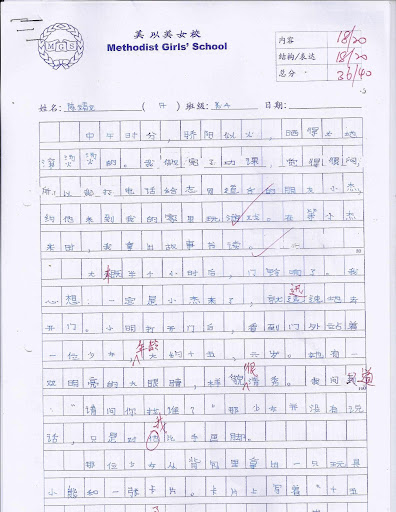 美以美女校
MGS
Methodist Girls' School
内容 18/20
结构/表达 18/20
总分 36/40
姓名: ( 7 ) 班级: A 日期:
中午时分，骄阳似火，晒得大地
滚烫烫的。我做完了功课，觉得很闷，
所以就打电话给志同道合的朋友小杰，
约他来到我的家里玩游戏。在等小杰
来时，我拿出故事书读。
大概半个小时后，门铃响了。我
心想：一定是小杰来了，就迅速地去
开门。小明打开门后，看到门外站着
一位少女，年龄大约十五、六岁。她有一
双圆亮的大眼睛，样貌很清秀。我问道
：“请问你找谁？”那少女并没有说
话，只是对我比手画脚。
那位少女从背包里拿出一只玩具
小熊和一张卡片。卡片上写着“十五